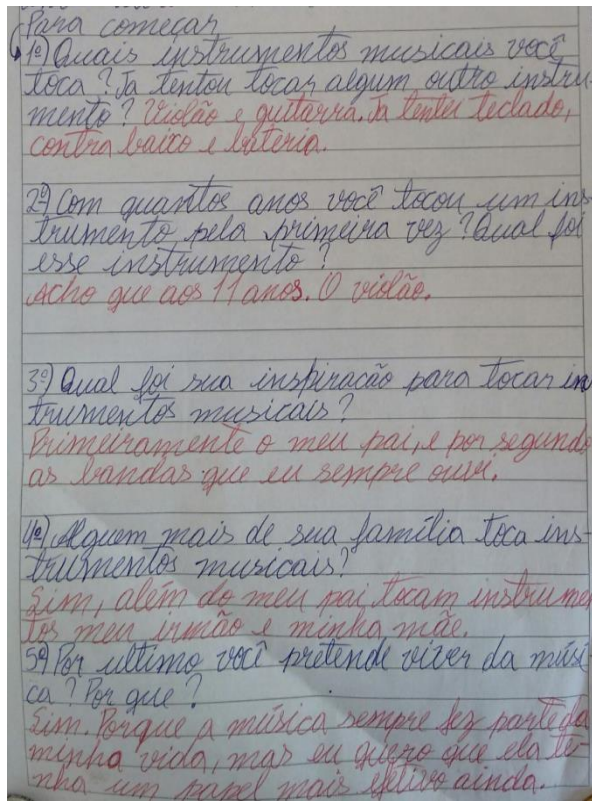 Para começar
1º) Quais instrumentos musicais você
toca? Ja tentou tocar algum outro instru-
mento? Violão e guitarra. Ja tentei teclado,
contra baixo e bateria.
2º) Com quantos anos você tocou um ins-
trumento pela primeira vez? Qual foi
esse instrumento?
Acho que aos 11 anos. O violão.
3º) Qual foi sua inspiracão para tocar in
trumentos musicais?
Primeiramente o meu pai, e por segundo
as bandas que eu sempre ouvi.
4º) Alguem mais de sua família toca ins-
trumentos musicais?
Sim, além do meu pai, tocam instrumen
tos meu irmão e minha mãe.
5º) Por ultimo você pretende viver da músi-
ca? Por que?
Sim. Porque a música sempre fez parte da
minha vida, mas eu quero que ela te-
nha um papel mais efetivo ainda.